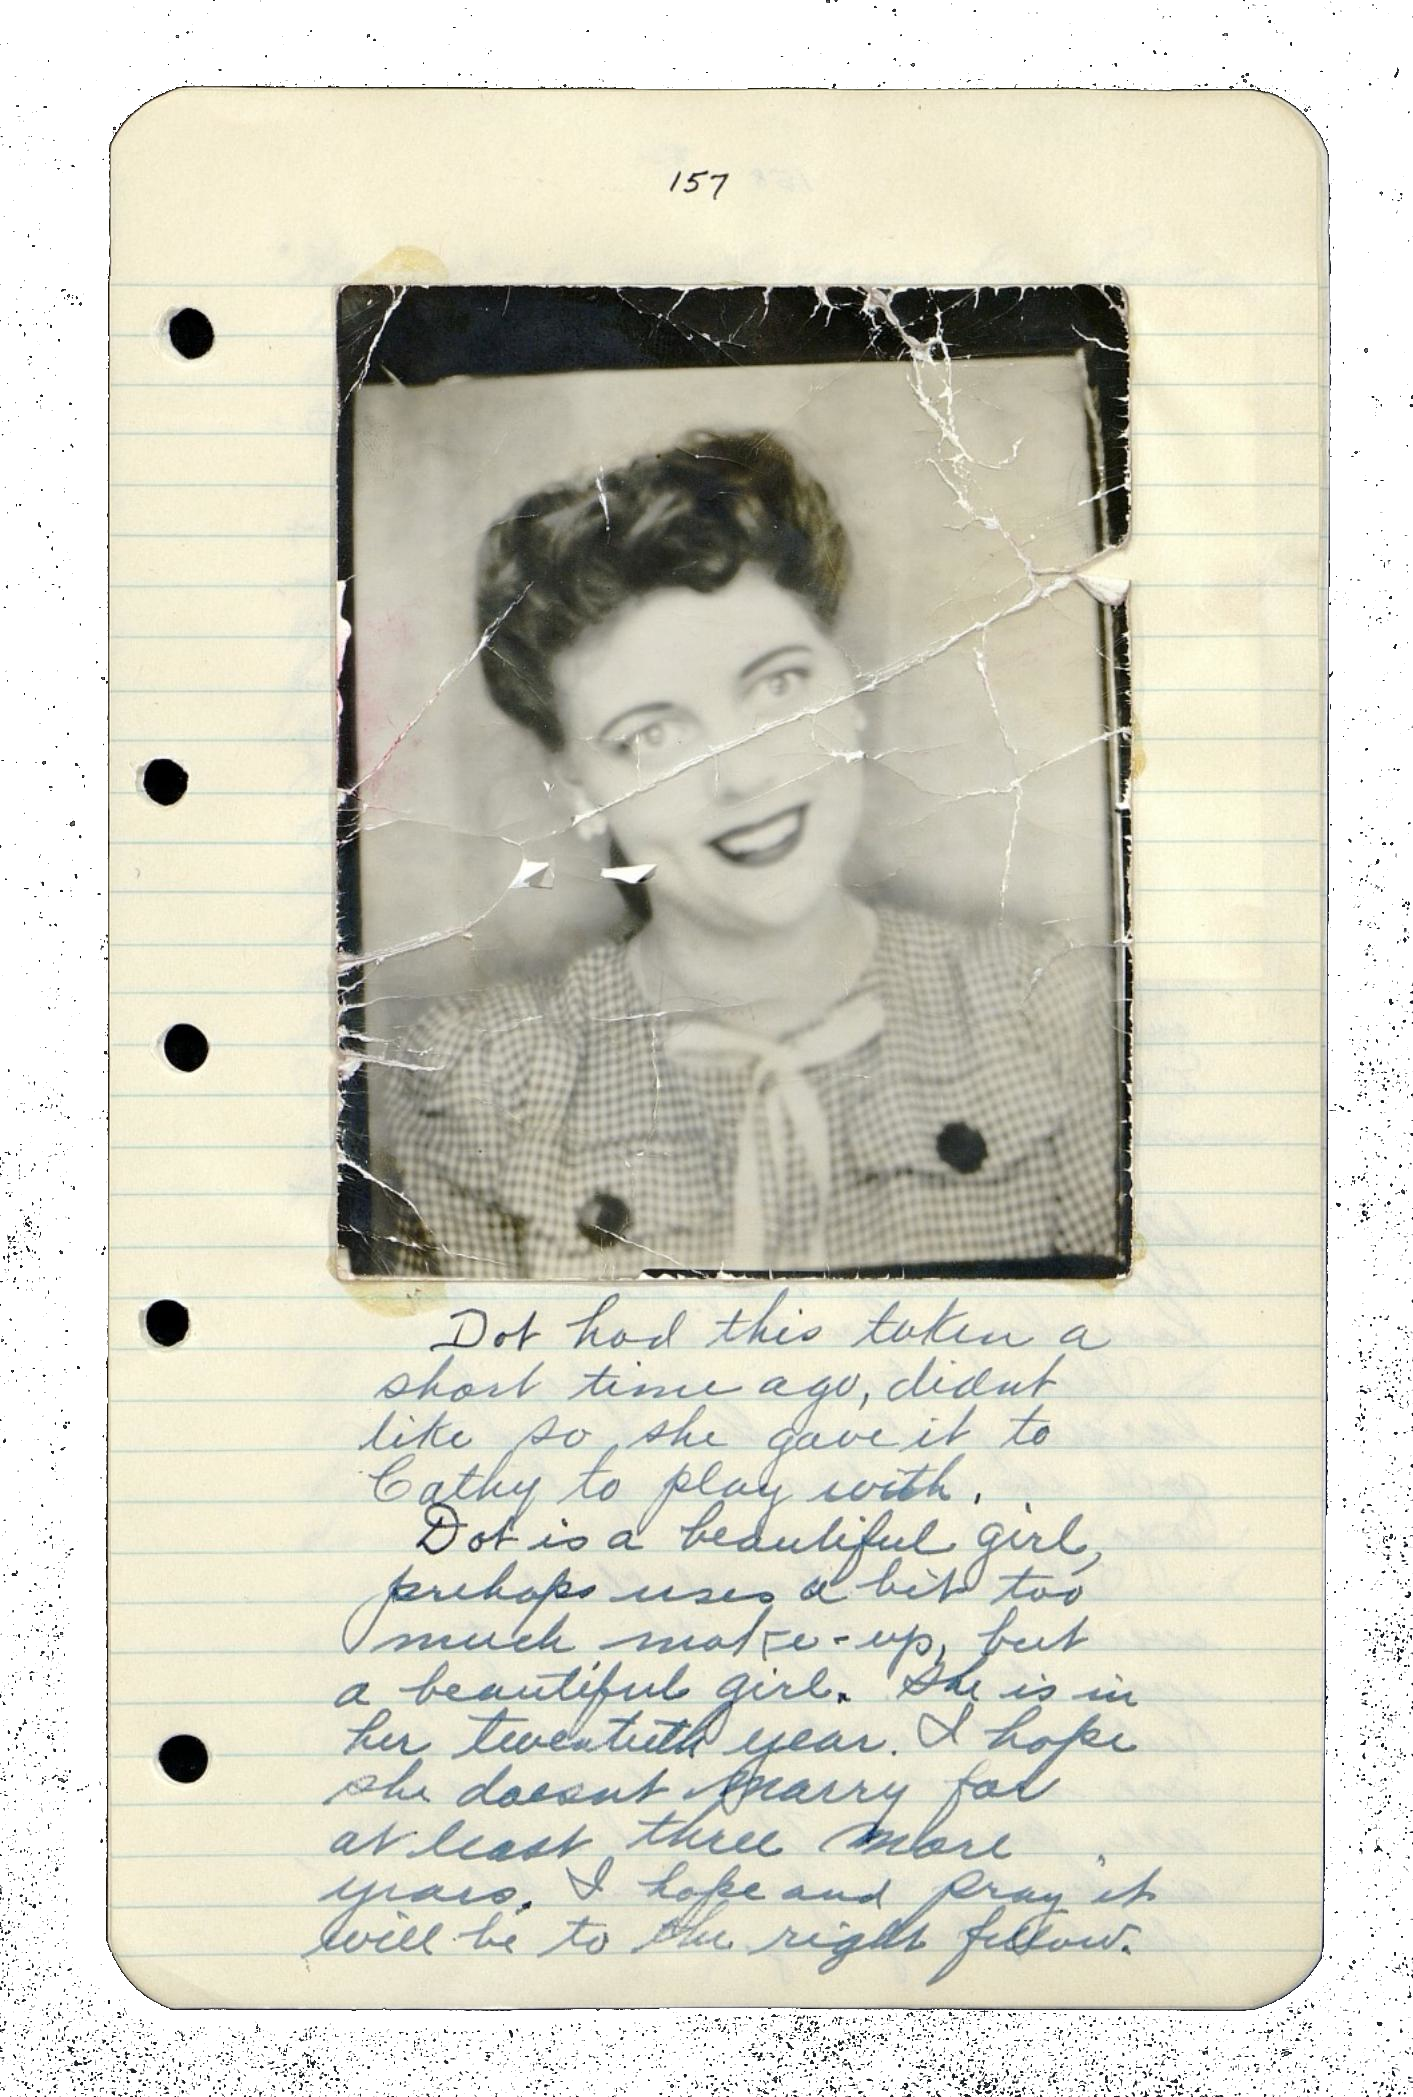 157
Dot had this taken a
short time ago, didnt
like so she gave it to
Cathy to play with.
Dot is a beautiful girl,
prehaps uses a bit too
much make-up, but
a beautiful girl. She is in
her twentieth year. I hope
she doesnt marry for
at least three more
years. I hope and pray it
will be to the right fellow.